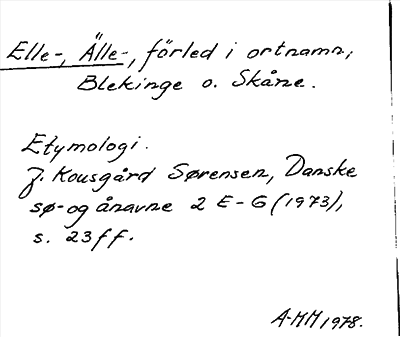 Elle-, Älle-, förled i ortnamn,
Blekinge o. Skåne.
Etymologi.
J. Kousgård Sørensen, Danske
sø- og ånavne 2 E-G (1973),
s. 23 ff.
A-MM 1978.